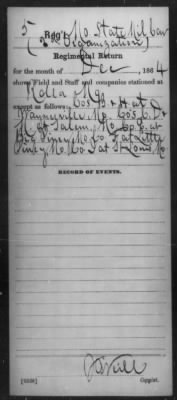 5 Reg't Mo State Mil Cav
(2d Organization)
Regimental Return
for the month of Dec, 1864
shows Field and Staff and companies stationed at
Rolla Mo.
except as follows: Cos B & H at
Waynesville, Mo. Cos. C. &
of Salem, Mo. Co. E. at
Big Piney Mo. Co. at Little
Piney Mo. Co. I at St Louis, Mo
RECORD OF EVENTS.
Copyist.